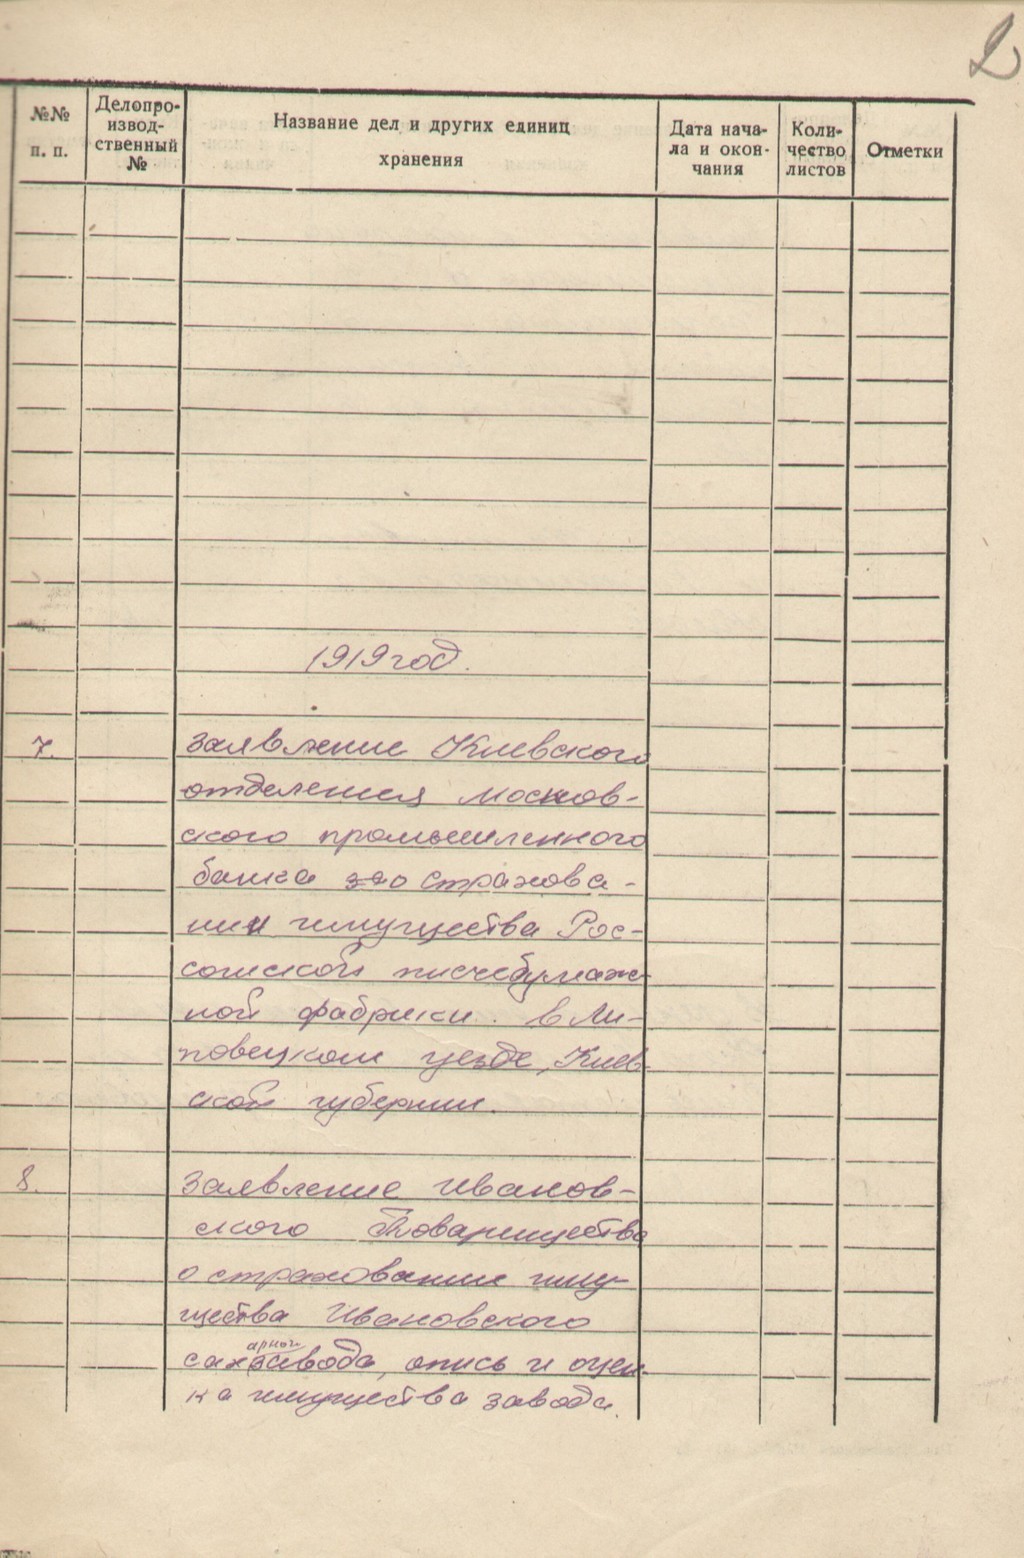 2
№№ п. п.
Делопро-
извод-
ственный
№
Название дел и других единиц
хранения
Дата нача-
ла и окон-
чания
Коли-
чество
листов
Отметки
1919 год.
7.
Заявление Киевского
отделения Москов-
ского промышленного
банка о страхова-
нии имущества Рос-
сошской писчебумаж-
ной фабрики в Ли-
повецком уезде, Киев-
ской губернии.
8.
Заявление Иванов-
ского Товарищества
о страховании иму-
щества Ивановского
сахарного завода, опись и оцен-
ка имущества завода.